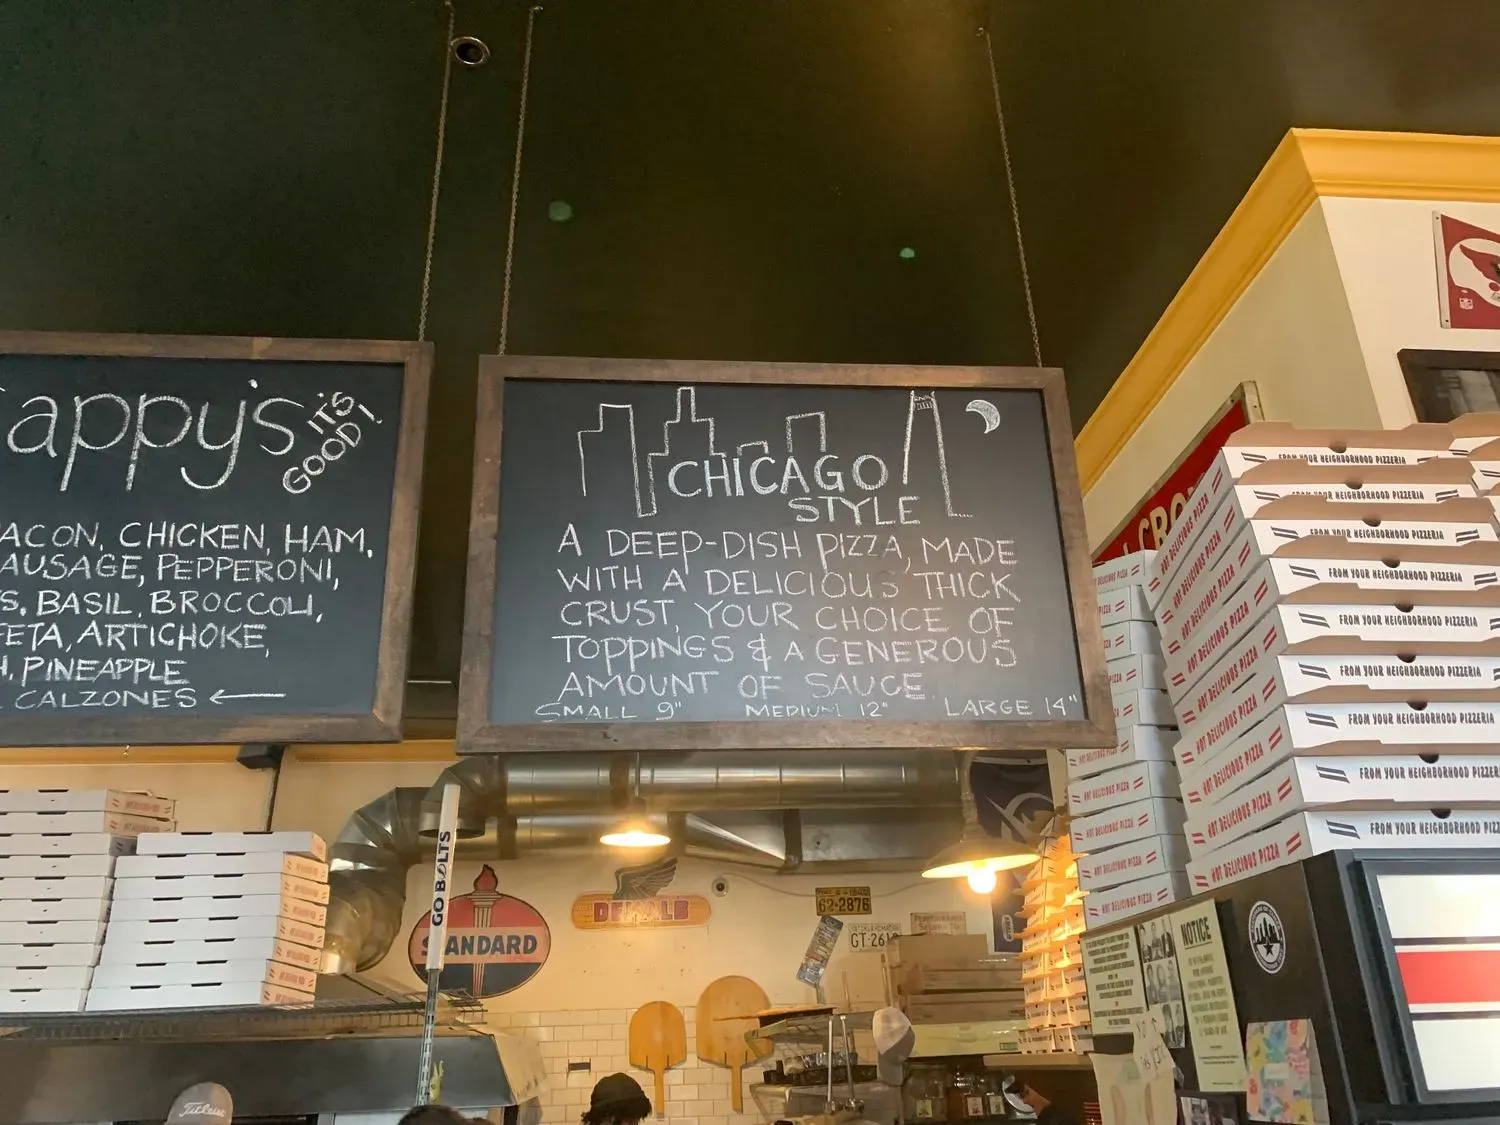 appy's
IT'S
GOOD!
ACON, CHICKEN, HAM,
AUSAGE, PEPPERONI,
S, BASIL, BROCCOLI,
FETA, ARTICHOKE,
H, PINEAPPLE
CALZONES ←
CHICAGO
STYLE
A DEEP-DISH PIZZA, MADE
WITH A DELICIOUS THICK
CRUST, YOUR CHOICE OF
TOPPINGS & A GENEROUS
AMOUNT OF SAUCE
SMALL 9" MEDIUM 12" LARGE 14"
FROM YOUR NEIGHBORHOOD PIZZERIA
FROM YOUR NEIGHBORHOOD PIZZERIA
FROM YOUR NEIGHBORHOOD PIZZERIA
FROM YOUR NEIGHBORHOOD PIZZERIA
FROM YOUR NEIGHBORHOOD PIZZERIA
FROM YOUR NEIGHBORHOOD PIZZERIA
FROM YOUR NEIGHBORHOOD PIZZERIA
FROM YOUR NEIGHBORHOOD PIZZERIA
FROM YOUR NEIGHBORHOOD PIZZ
HOT DELICIOUS PIZZA
HOT DELICIOUS PIZZA
HOT DELICIOUS PIZZA
HOT DELICIOUS PIZZA
HOT DELICIOUS PIZZA
HOT DELICIOUS PIZZA
HOT DELICIOUS PIZZA
HOT DELICIOUS PIZZA
GO BOLTS
STANDARD
DEKALB
62-2876
GT-261
NOTICE
Titleist